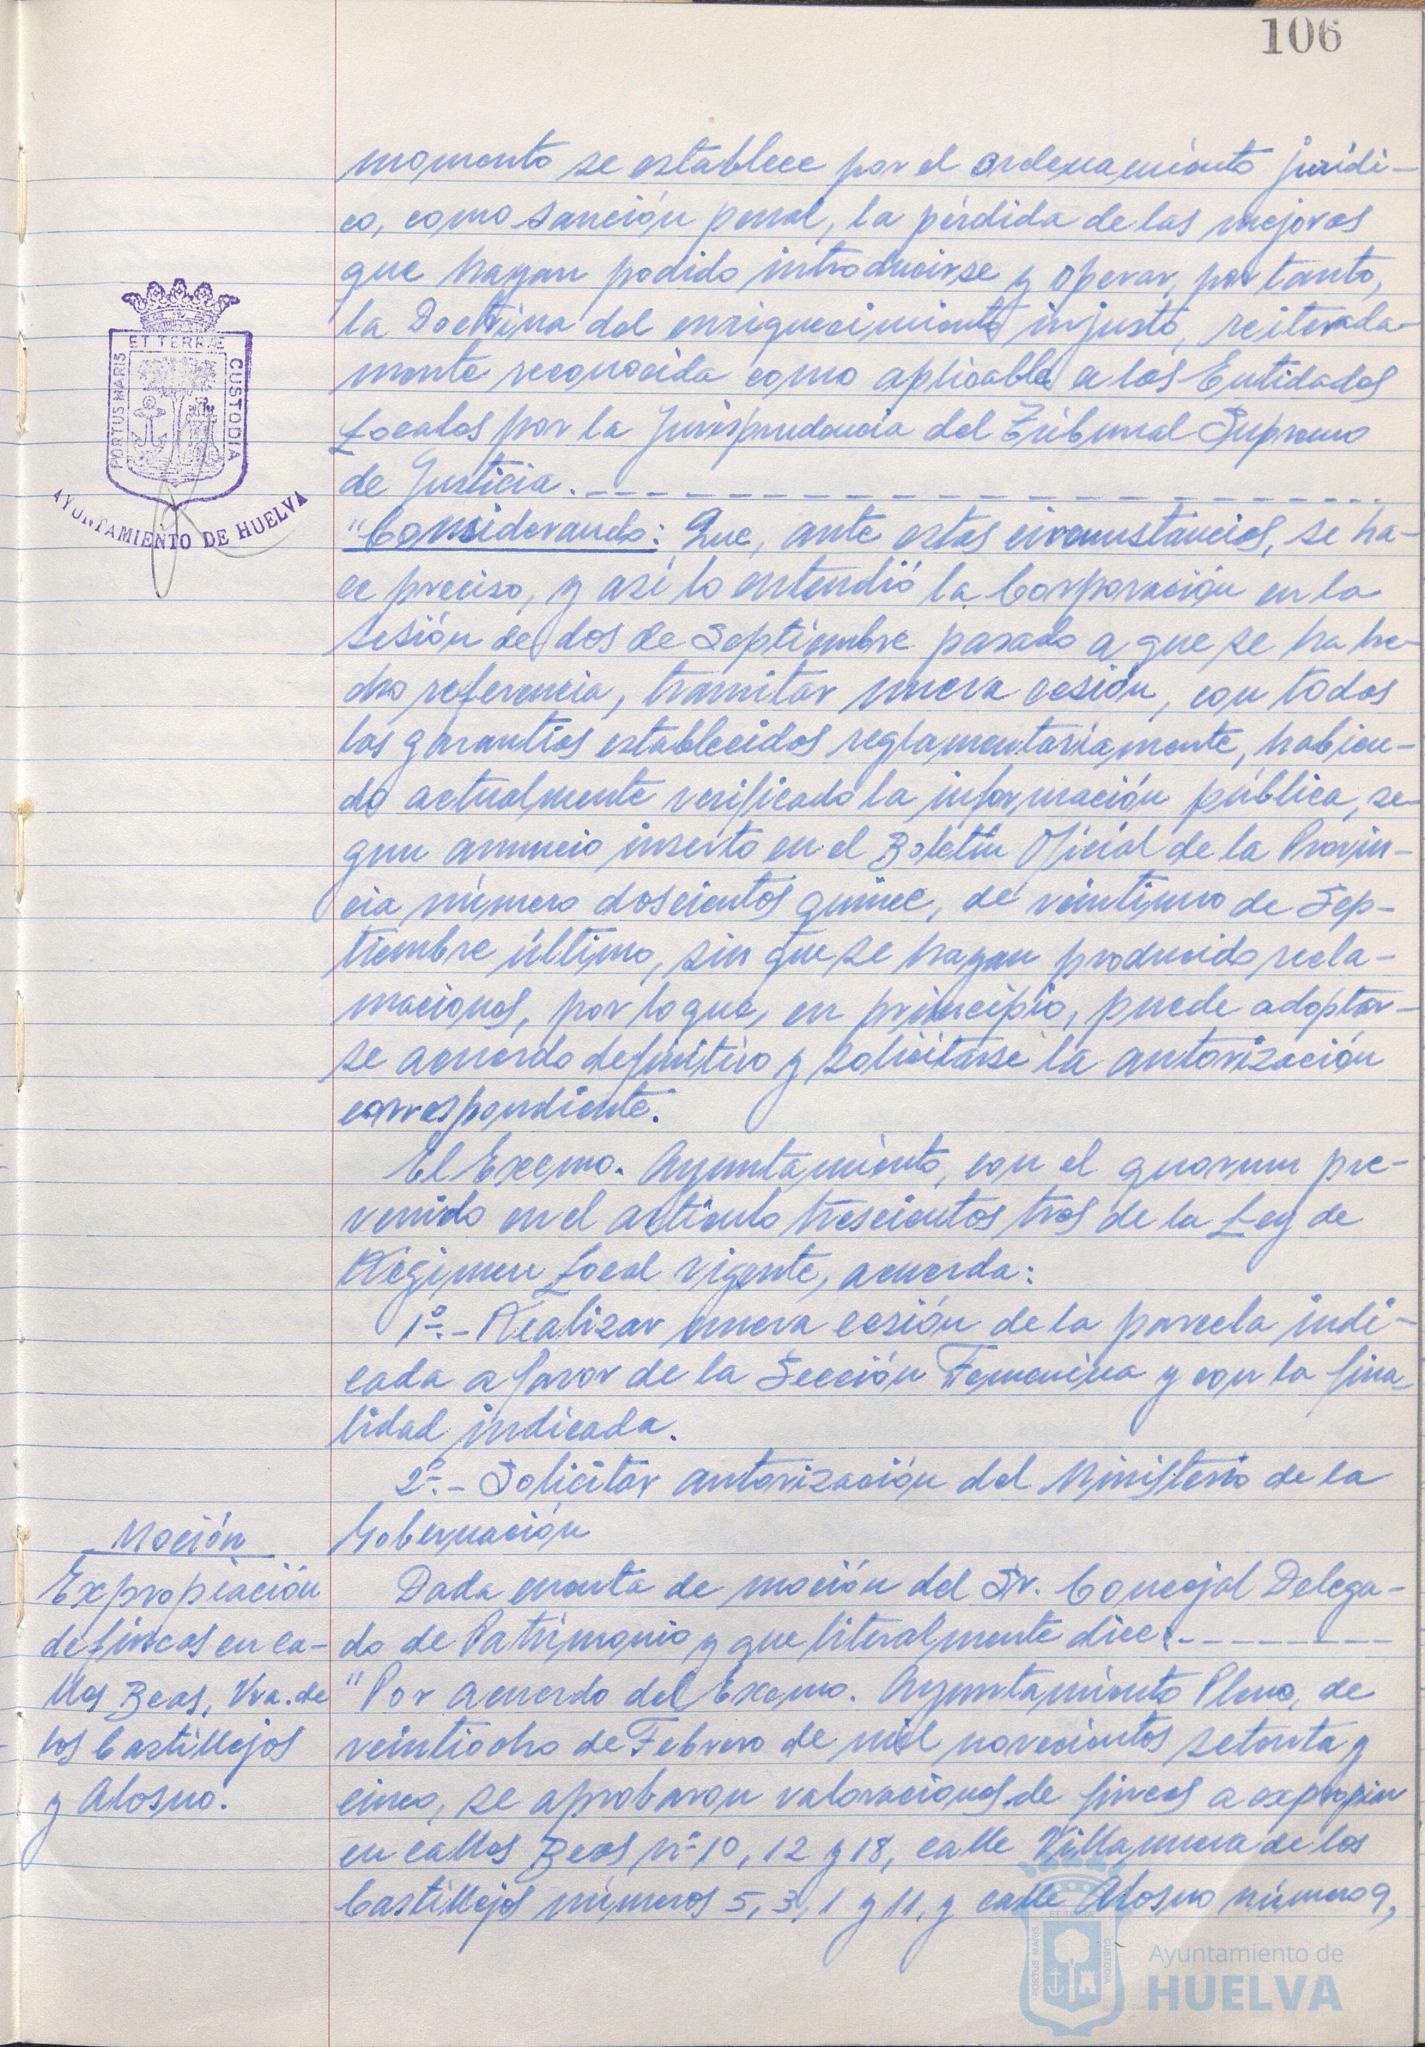 106
momento se establece por el ordenamiento jurídi-
co, como sanción penal, la pérdida de las mejoras
que hayan podido introducirse y operar, por tanto,
la Doctrina del enriquecimiento injusto, reiterada-
mente reconocida como aplicable a las Entidades
Locales por la Jurisprudencia del Tribunal Supremo
de Justicia.
"Considerando: Que, ante estas circunstancias, se ha-
ce preciso, y así lo entendió la Corporación en la
sesión de dos de Septiembre pasado a que se ha he-
cho referencia, tramitar nueva cesión, con todas
las garantías establecidas reglamentariamente, habien-
do actualmente verificado la información pública, se-
gun anuncio inserto en el Boletín Oficial de la Provin-
cia número doscientos quince, de veintiuno de Sep-
tiembre último, sin que se hayan producido recla-
maciones, por lo que, en principio, puede adoptar-
se acuerdo definitivo y solicitarse la autorización
correspondiente.
El Excmo. Ayuntamiento, con el quorum pre-
venido en el artículo trescientos tres de la Ley de
Régimen Local vigente, acuerda:
1º.- Realizar nueva cesión de la parcela indi-
cada a favor de la Sección Femenina y con la fina-
lidad indicada.
2º.- Solicitar autorización del Ministerio de la
Gobernación
Dada cuenta de moción del Sr. Concejal Delega-
do de Patrimonio y que literalmente dice:
"Por acuerdo del Excmo. Ayuntamiento Pleno, de
veintiocho de Febrero de mil novecientos setenta y
cinco, se aprobaron valoraciones de fincas a expropiar
en calles Beas nº 10, 12 y 18, calle Villanueva de los
Castillejos números 5, 3, 1 y 11, y calle Alosno número 9,
Moción
Expropiación
de fincas en ca-
lles Beas, Vva. de
los Castillejos
y Alosno.
PORTUS MARIS
ET TERRÆ
CUSTODIA
AYUNTAMIENTO DE HUELVA
PORTUS MARIS
CUSTODIA
Ayuntamiento de
HUELVA